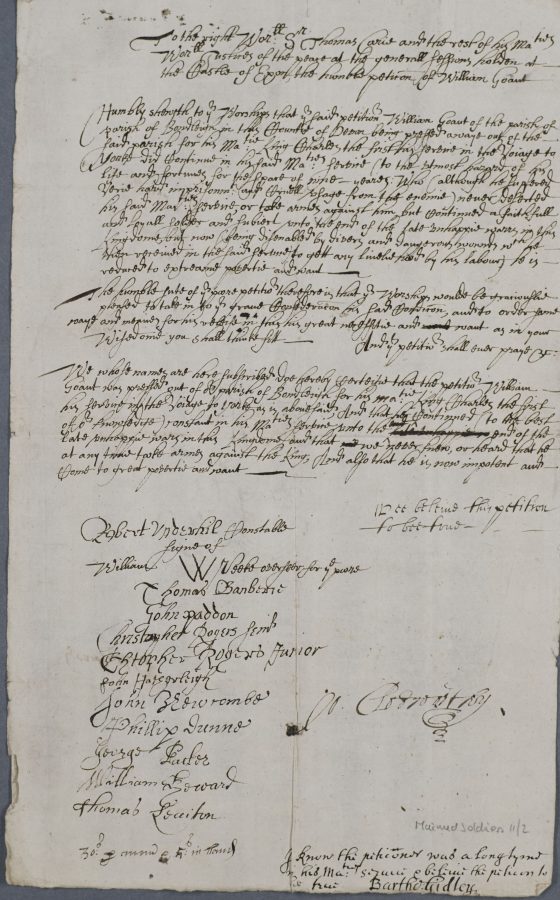 To the right Wor:ll Sr Thomas Carie and the rest of his Maties
Wor:ll Justices of the peace at the generall sessions holden at
the Castle of Exon the humble peticon of William Goaut
Humbly sheweth to yr Worships that yr said petitionr William Goaut of the parish of
parish of Bondleigh in this County of Devon being pressed awaye out of the
said parish for his Matie King Charles the first his service in the voiage to
did Continue in his said Maties service (to the utmost hazard of his
life and fortunes for the space of nine yeares. Who (although he suffered
verie hard imprisonmt and Cruell usage from the enemie) never deserted
his said Maties service or take armes against him but Continued a faithfull
and loyall soldier and subject unto the end of the late unhappie warrs in this
Kingdome, but now (being disenabled by divers and dangerous wounds wch he
then received in the said service to gett any livelihood by his labour) he is
reduced to extreame povertie and want
The humble sute of yr poore petitionr therefore is that yr Worships would be graciouslie
pleased to take in to yr grave Consideracon his sad Condicon, and to order some
waye and meanes for his releise in this his great necessitie and want as in your
Wisedome you shall thinke fit
And yr petitionr shall ever praye &c
We whose names are here subscribed doe hereby Certifie that the petitionr William
Goaut was pressed out of the parish of Bondleigh for his Matie King Charles the first
his service in the voiage as is abovesaid, And that he Continued (to the best
of our knowledge) constant in his Maties service unto the end of the
late unhappie warrs in this Kingdome and that we never knew, or heard that he
at any time tooke armes against the King, And also that he is now impotent and
Come to great povertie and want
Wee beleive this petition
to bee true
Robert Underhil Constable
signe of
William W Weeke overseer for ye poore
Thomas Banberie
John Paddon
Christopher Rogers senr
Chtopher Rogers Junior
John Hatherleigh
John Newcombe
Phillip Dunne
George Packer
William Heward
Thomas
Maimed Soldiers 11/2
30s p annu & in hand
I know the peticoner was a long tyme
in his Maties service & beleive the peticon to
be true Bartho: Gidley